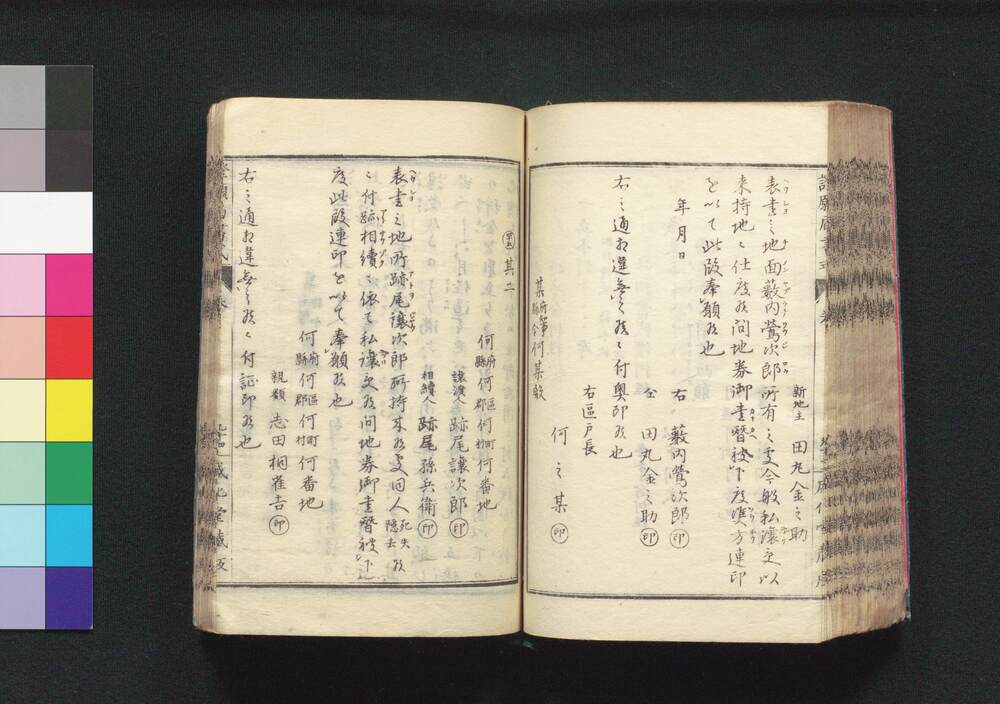 新地主 田丸金之助
表書之地面薮内鶯次郎所有之処今般私譲受以
来持地ニ仕度候間地券御書替被下度双方連印
を以て此段奉願候也
年月日
右 薮内鶯次郎 印
仝 田丸金之助 印
右之通相違無之候ニ付奥印候也
右區戸長
何之某 印
某府知事縣令何某殿
其二
何府縣何區郡何町村何番地
譲渡人 跡尾譲次郎 印
相續人 跡尾孫兵衛 印
表書之地所跡尾譲次郎所持来候処同人死失隠去候
ニ付跡相續ニ依て私譲受候間地券御書替被下
度此段連印を以て奉願候也
何府縣何區郡何町村何番地
親類 志田桐雀吉 印
右之通相違無之候ニ付証印候也